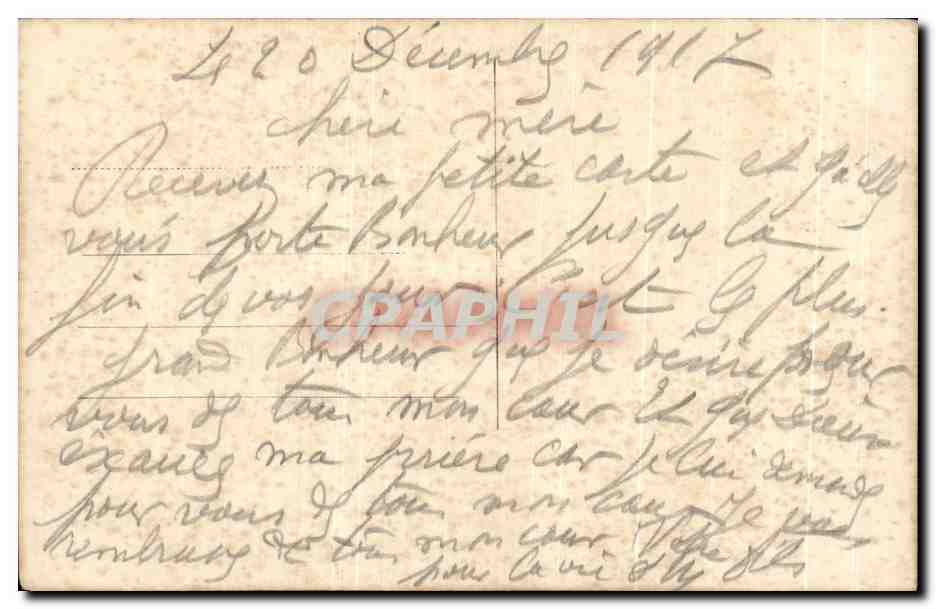 Le 20 Décembre 1917
chère mère
Recevez ma petite carte et qu'elle
vous porte Bonheur jusque la
fin de vos jour C'est le plus
grand Bonheur que je désire pour
vous de tout mon cœur Et que Dieu
exauce ma prière car je lui demande
pour vous de tout mon cœur Je vous
embrasse de tout mon cœur Votre fils
pour la vie
CPAPHIL